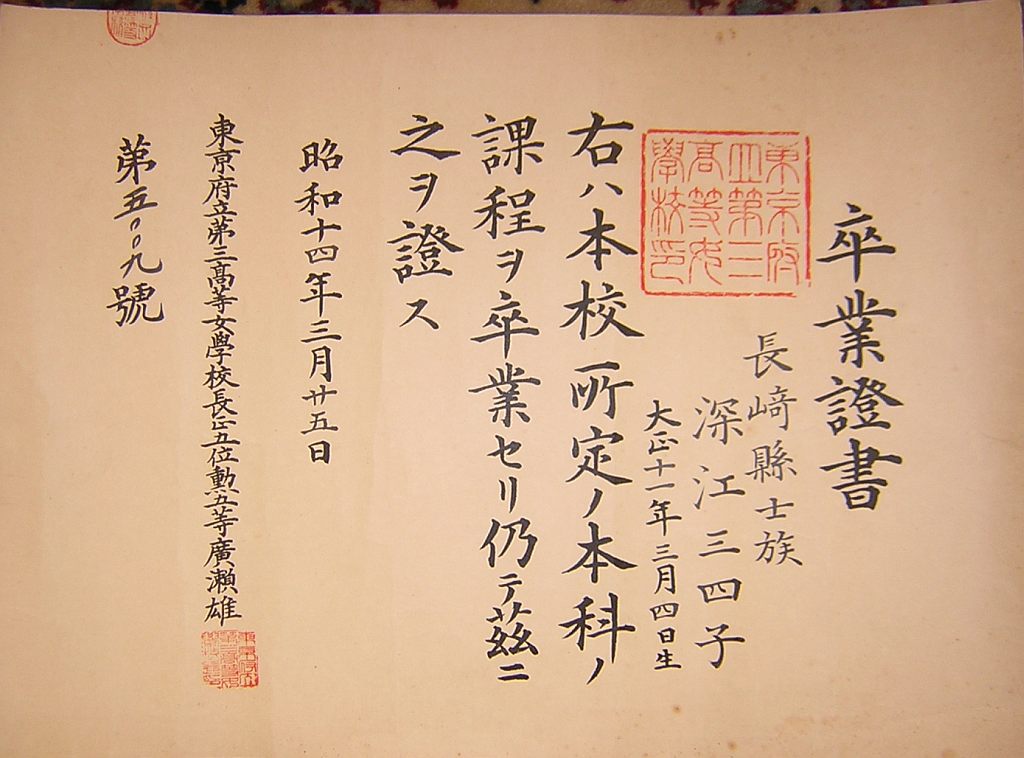 卒業證書
長﨑縣士族
深江三四子
大正十一年三月四日生
東京府
立第三
髙等女
學校印
右ハ本校所定ノ本科ノ
課程ヲ卒業セリ仍テ茲ニ
之ヲ證ス
昭和十四年三月廿五日
東京府立第三髙等女學校長正五位勲五等廣瀨雄
第五〇〇九號